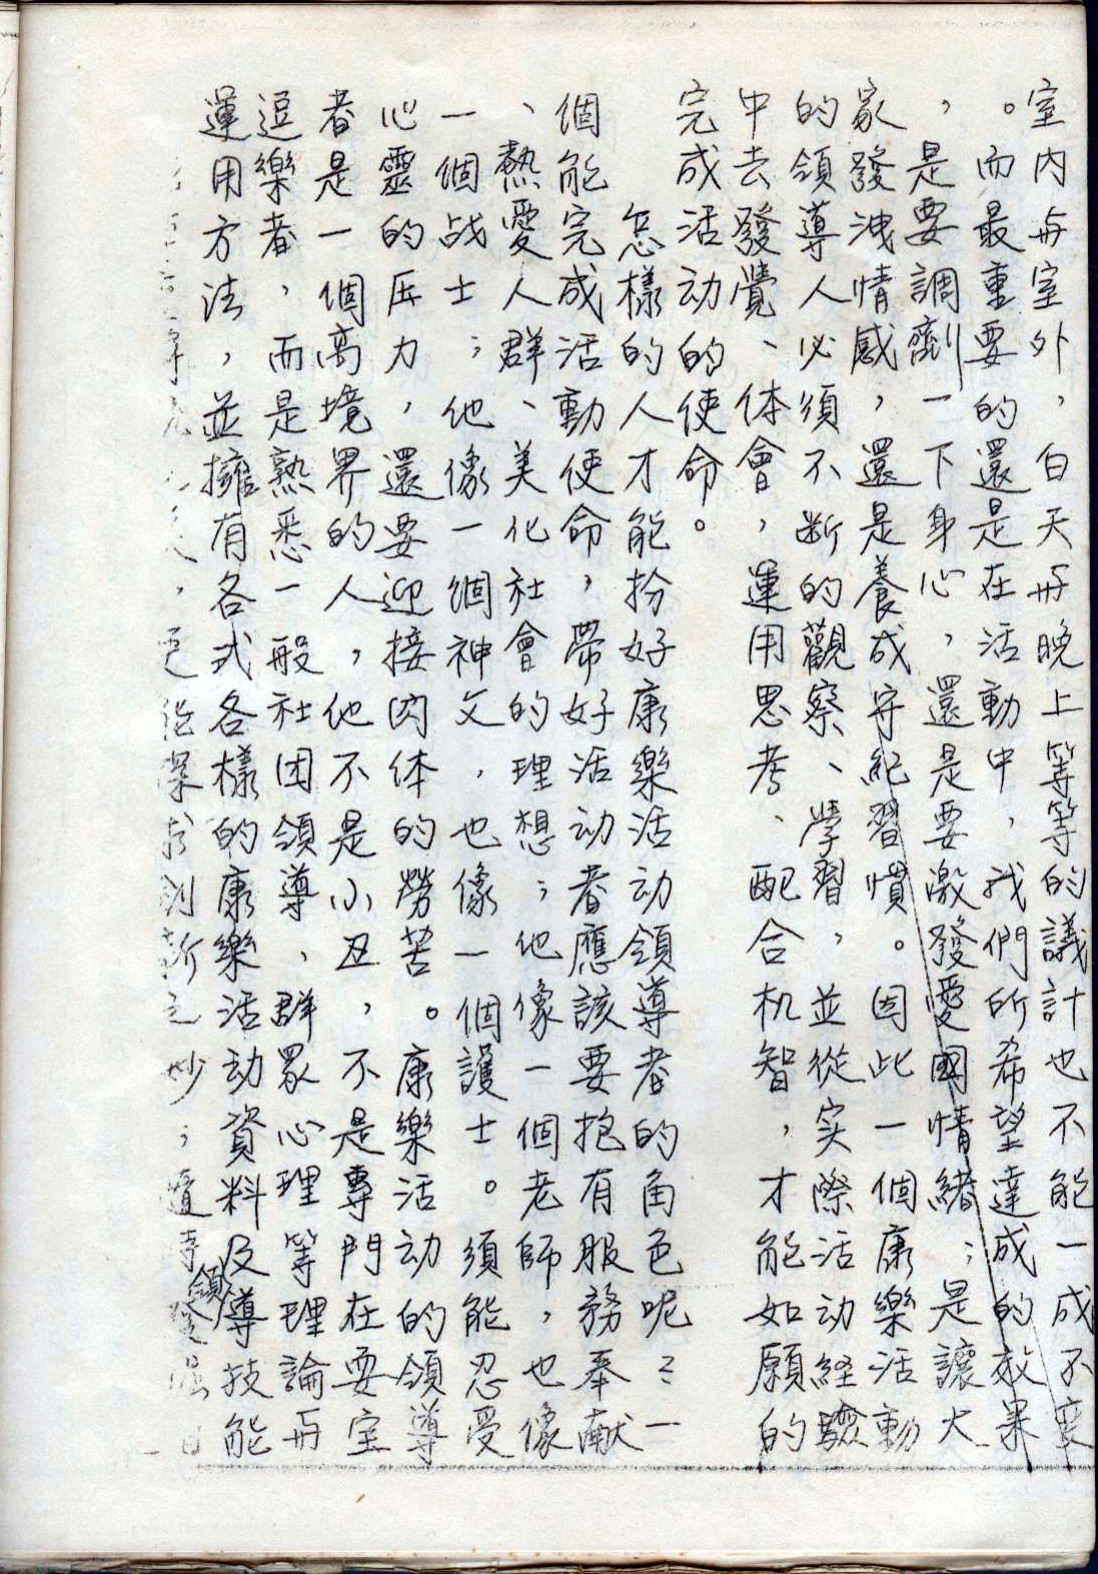 室內与室外，白天与晚上等等的議計也不能一成不变
。而最重要的還是在活動中，我們所希望達成的效果
，是要調劑一下身心，還是要激發愛國情緒；是讓大
家發洩情感，還是養成守紀習慣。因此一個康樂活動
的領導人必須不断的觀察、學習，並從实際活动経驗
中去發覺、体會，運用思考、配合机智，才能如願的
完成活动的使命。
怎樣的人才能扮好康樂活动領導者的角色呢？一
個能完成活動使命，帶好活动者應該要抱有服務奉献
、熱愛人群、美化社會的理想；他像一個老師，也像
一個战士；他像一個神父，也像一個護士。須能忍受
心靈的压力，還要迎接肉体的勞苦。康樂活动的領導
者是一個高境界的人，他不是小丑，不是專門在耍宝
逗樂者，而是熟悉一般社团領導、群眾心理等理論与
運用方法，並擁有各式各樣的康樂活动資料及領導技能
，更能 创新之妙；